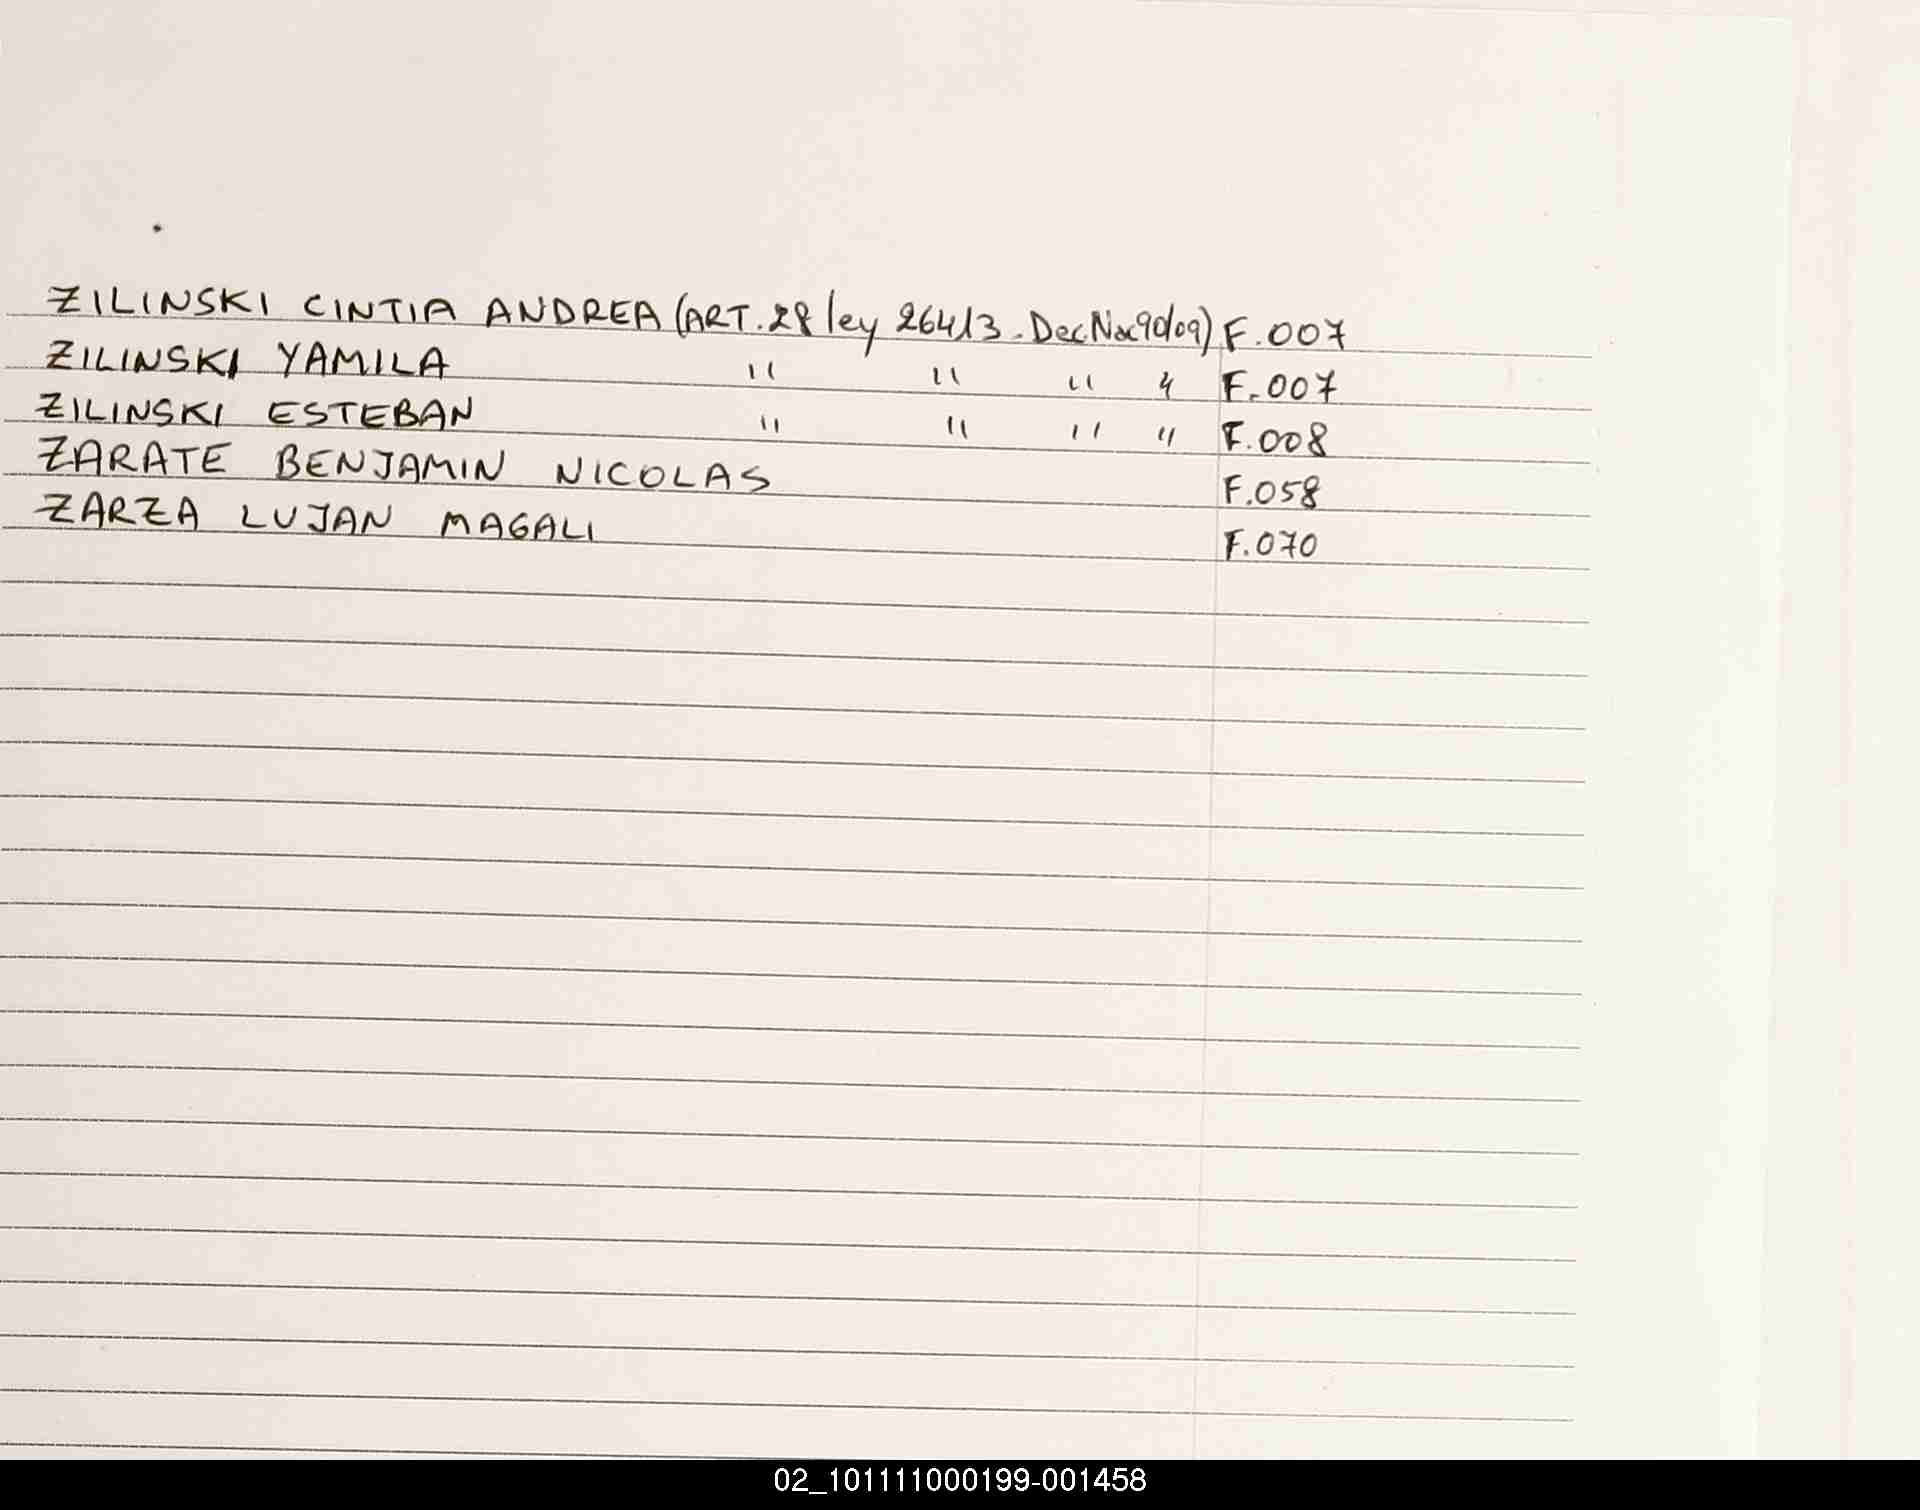 ZILINSKI CINTIA ANDREA (ART. 28 ley 26413. Dec.Nac 90/09) F. 007
ZILINSKI YAMILA " " " " F. 007
ZILINSKI ESTEBAN " " " " F. 008
ZARATE BENJAMIN NICOLAS F. 058
ZARZA LUJAN MAGALI F. 070
02_101111000199-001458